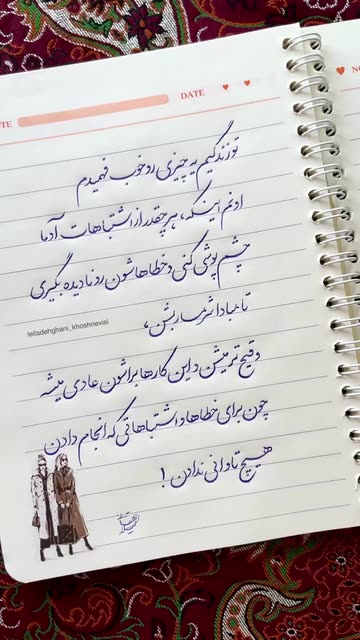 DATE
تو زندگیم یه چیزی رو خوب فهمیدم
اونم اینکه، هر چقدر از اشتباهات آدما
چشم پوشی کنی و خطاهاشون رو نادیده بگیری
تا مبادا شرمسار بشن،
leiladehghani_khoshnevisi
وقیح تر میشن و این کارها براشون عادی میشه
چون برای خطاها و اشتباهاتی که انجام دادن
هیچ تاوانی ندادن !